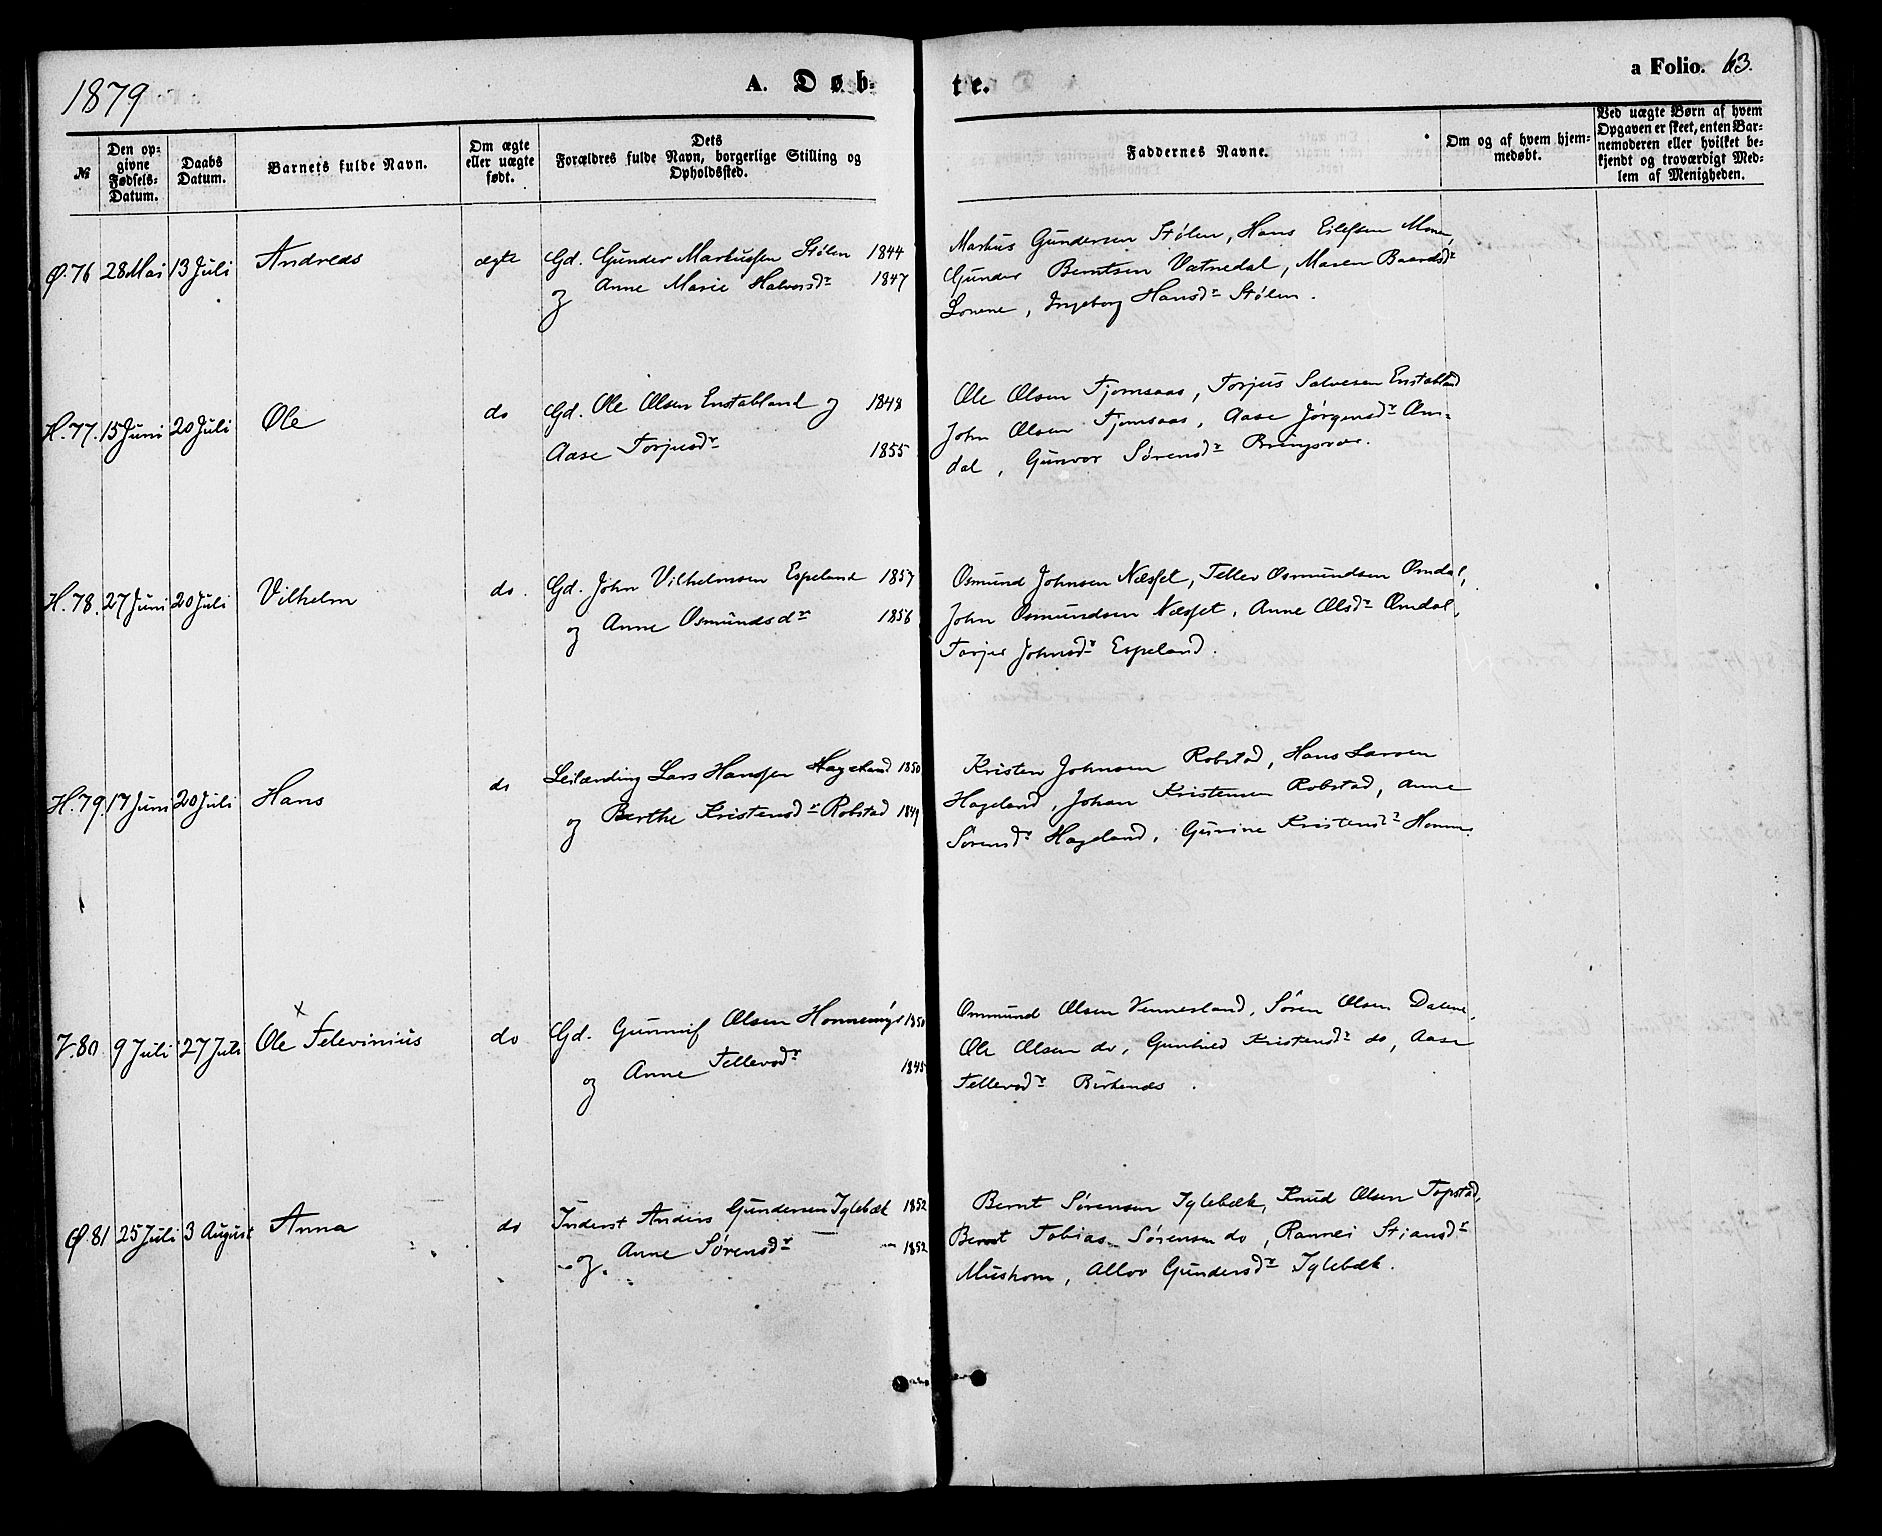 1879
A. Døb-
te.
a Folio. 63.
№
Den op-
givne
Fødsels-
Datum.
Daabs
Datum.
Barnets fulde Navn.
Om ægte
eller uægte
født.
Dets
Forældres fulde Navn, borgerlige Stilling og
Opholdssted.
Faddernes Navne.
Om og af hvem hjem-
medøbt.
Ved uægte Børn af hvem
Opgaven er skeet, enten Bar-
nemoderen eller hvilket be-
kjendt og troværdigt Med-
lem af Menigheden.
Ø. 76 28 Mai 13 Juli Andreas ægte Gd. Gunder Markussen Stølen 1844
og Anne Marie Halvorsdr 1847
Markus Gundersen Stølen, Hans Eilefsen Moen,
Gunder Berntsen Vatnedal, Maren Baardsdr
Lonene, Ingeborg Hansdr Stølen.
H. 77. 15 Juni 20 Juli Ole do Gd. Ole Olsen Enstabland og 1848
Aase Torjusdr 1855
Ole Olsen Fjomsaas, Torjus Salvesen Enstabland
John Olsen Fjomsaas, Aase Jørgensdr Om-
dal, Gunvor Sørensdr Bringsvor.
H. 78. 27 Juni 20 Juli Vilhelm do. Gd. John Vilhelmsen Espeland 1857
og Anne Osmundsdr 1856
Osmund Johnsen Næsset, Tellev Osmundsen Omdal,
John Osmundsen Næsset, Anne Olsdr Omdal,
Torjer Johnsdr Espeland.
H. 79. 17 Juni 20 Juli Hans do Leilænding Lars Hanssen Hageland 1850
og Berthe Kristensdr Robstad 1849
Kristen Johnsen Robstad, Hans Larsen
Hageland, Johan Kristensen Robstad, Anne
Sørensdr Hageland, Gurine Kristensdr Homme
V. 80. 9 Juli 27 Juli Ole Televinius do Gd. Gunnuf Olsen Honnemyr 1850
og Anne Tellevsdr 1845
Ommund Olsen Vennesland, Sören Olsen Dalene,
Ole Olsen do, Gunhild Kristensdr do, Aase
Tellevsdr Birkenes.
Ø. 81 25 Juli 3 August Anna do Inderst Anders Gundersen Iglebæk 1852
og Anne Sørensdr 1852
Bernt Sørensen Iglebæk, Knud Olsen Topstad,
Bernt Tobias Sørensen do, Rannei Stiansdr
Mushom, Allov Gundersdr Iglebæk.